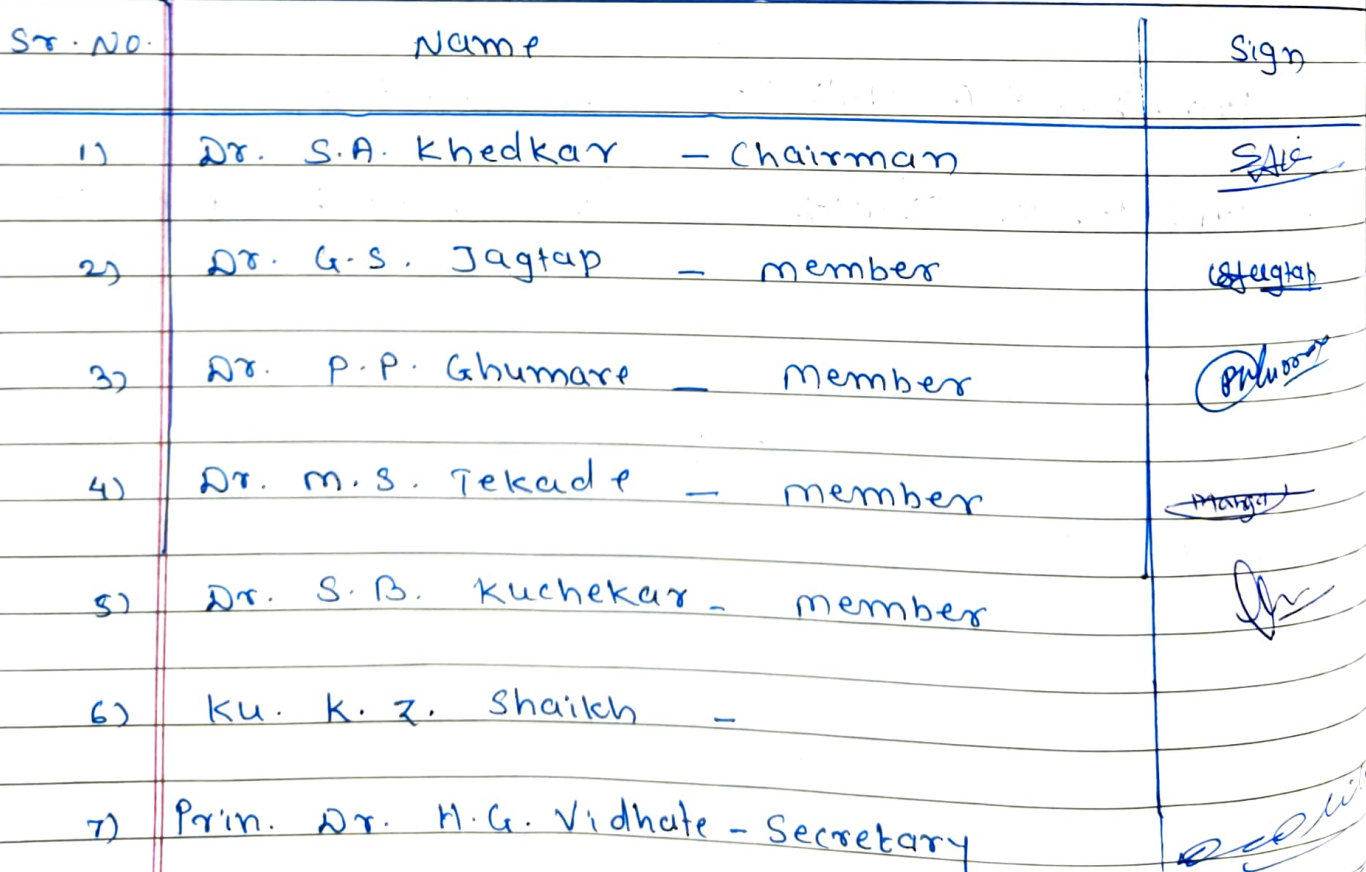 Sr. No. Name Sign
1) Dr. S.A. Khedkar - Chairman
2) Dr. G.S. Jagtap - member
3) Dr. P.P. Ghumare - member
4) Dr. M.S. Tekade - member
5) Dr. S.B. Kuchekar - member
6) Ku. K. Z. Shaikh -
7) Prin. Dr. H.G. Vidhate - Secretary